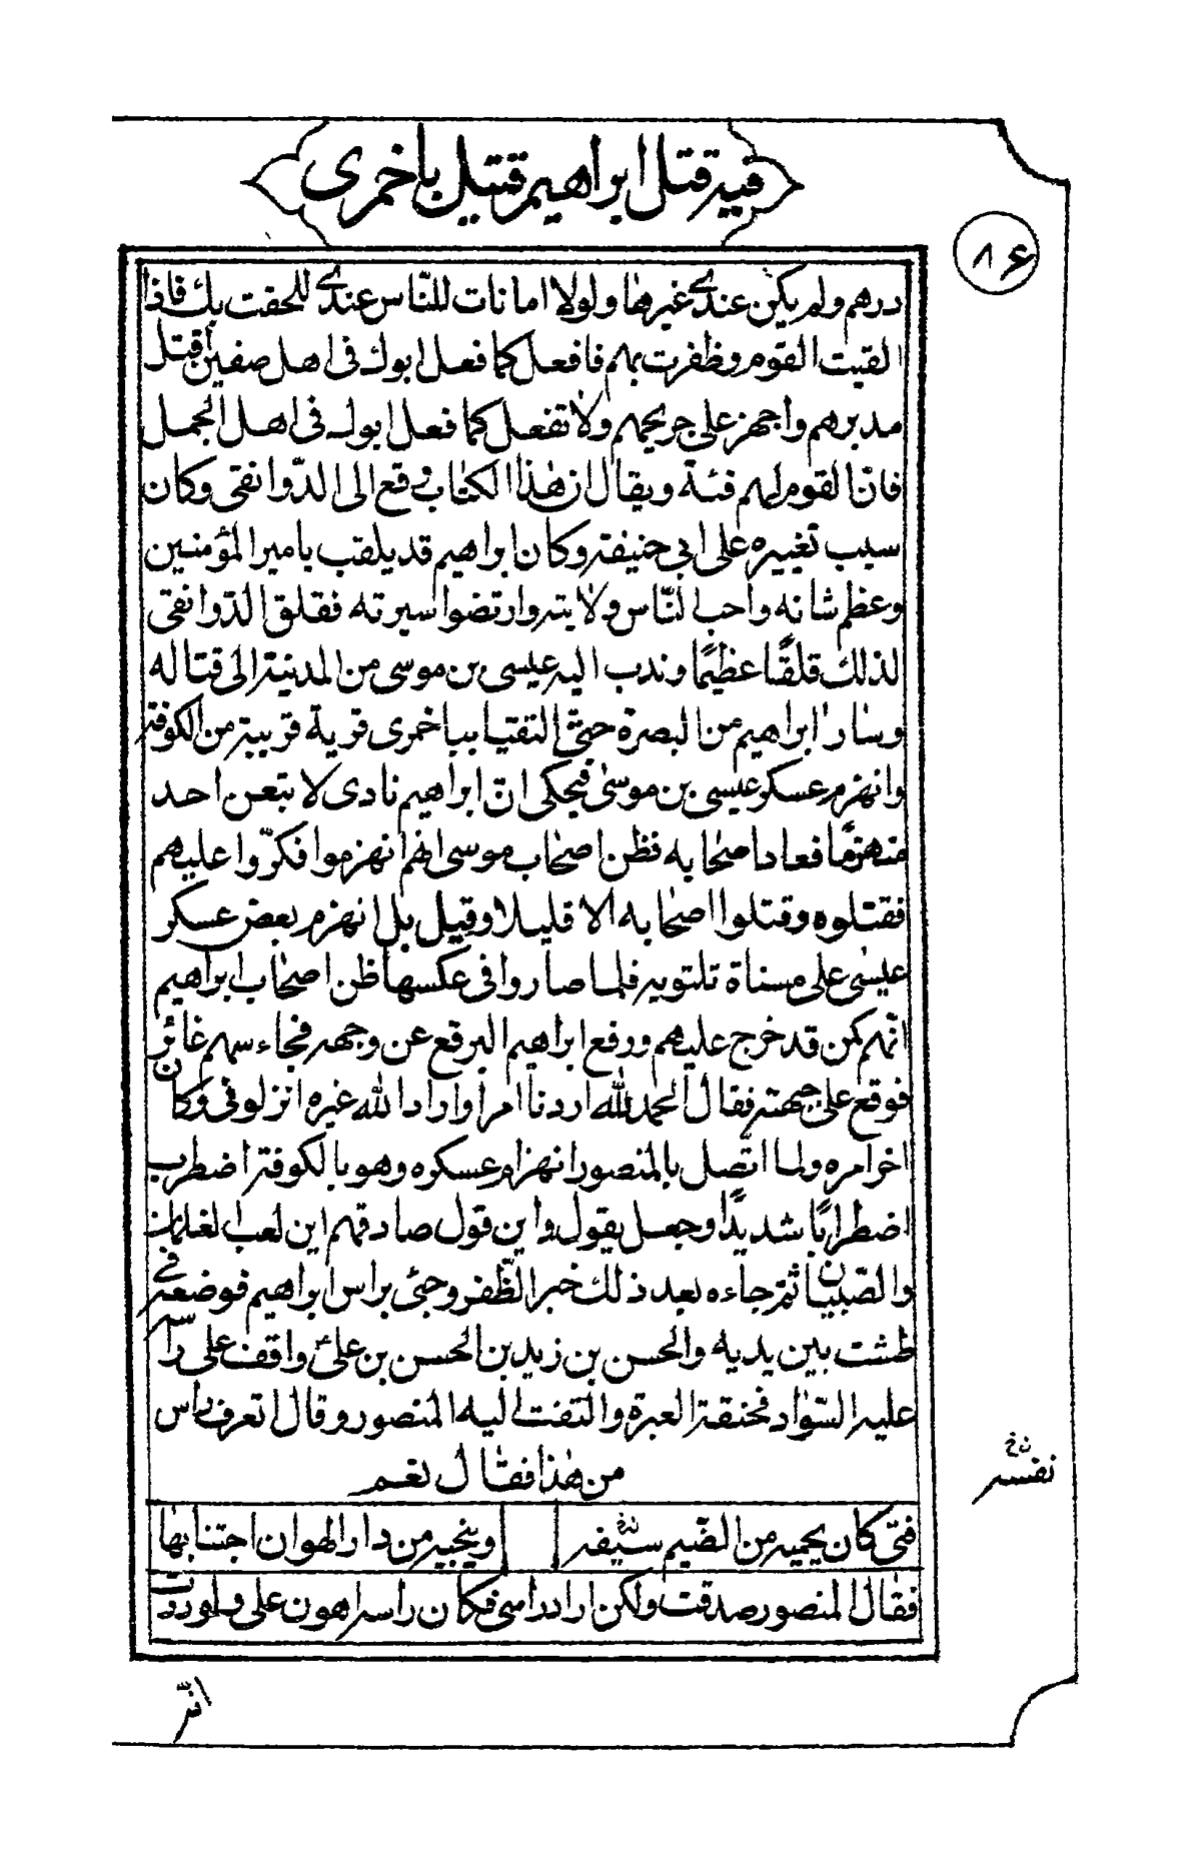 فيه قتل ابراهيم قتيل باخمرى
٨٤
درهم ولم يكن عندى غيرها ولولا امانات للنّاس عندى للحقت بك فاذا
القيت القوم وظفرت بهم فافعل كما فعل ابوك فى اهل صفين اقتل
مدبرهم واجهز على جريحهم ولا تفعل كما فعل ابوك فى اهل الجمل
فانّ القوم لهم فئة ويقال ان هٰذا الكتاب وقع الى الدّوانقى وكان
سبب تغييره على ابى حنيفة وكان ابراهيم قد يلقب بامير المؤمنين
وعظم شانه واحب النّاس ولايته وارتضوا سيرته فقلق الدّوانقى
لذلك قلقًا عظيمًا وندب اليه عيسى بن موسى من المدينة الى قتاله
وسار ابراهيم من البصرة حتّى التقيا بباخمرى قرية قريبة من الكوفة
وانهزم عسكر عيسى بن موسى فيحكى انّ ابراهيم نادى لا يتبعن احد
منهزمًا فعاد اصحابه فظن اصحاب موسى انهم انهزموا فكرّوا عليهم
فقتلوه وقتلوا اصحابه الا قليلا وقيل بل انهزم بعض عسكر
عيسى على مسناة تلتويه فلما صاروا فى عكسها ظن اصحاب ابراهيم
انّهم كمن قد خرج عليهم ورفع ابراهيم البرقع عن وجهه فجاءه سهم غائر
فوقع على جبهته فقال الحمد لله اردنا امرا واراد الله غيره انزلوفى وكان
اخر امره ولما اتّصل بالمنصور انهزام عسكره وهو بالكوفة اضطرب
اضطرابًا شديدًا وجعل يقول واين قول صادقهم اين لعب الغلمان
والصّبيان ثم جاءه بعد ذلك خبر الظّفر وجئ براس ابراهيم فوضعه فى
طشت بين يديه والحسن بن زيد بن الحسن بن علىؑ واقف على راسه
عليه السّواد فخنقته العبرة والتفت اليه المنصور وقال اتعرف راس
من هٰذا فقال نعم
فتى كان يحميه من الضّيم سيفه وينجيه من دار الهوان اجتنابها
نفسه
خ
فقال المنصور صدقت ولكن اراد راسى فكان راسه اهون على ولوددت
انّه